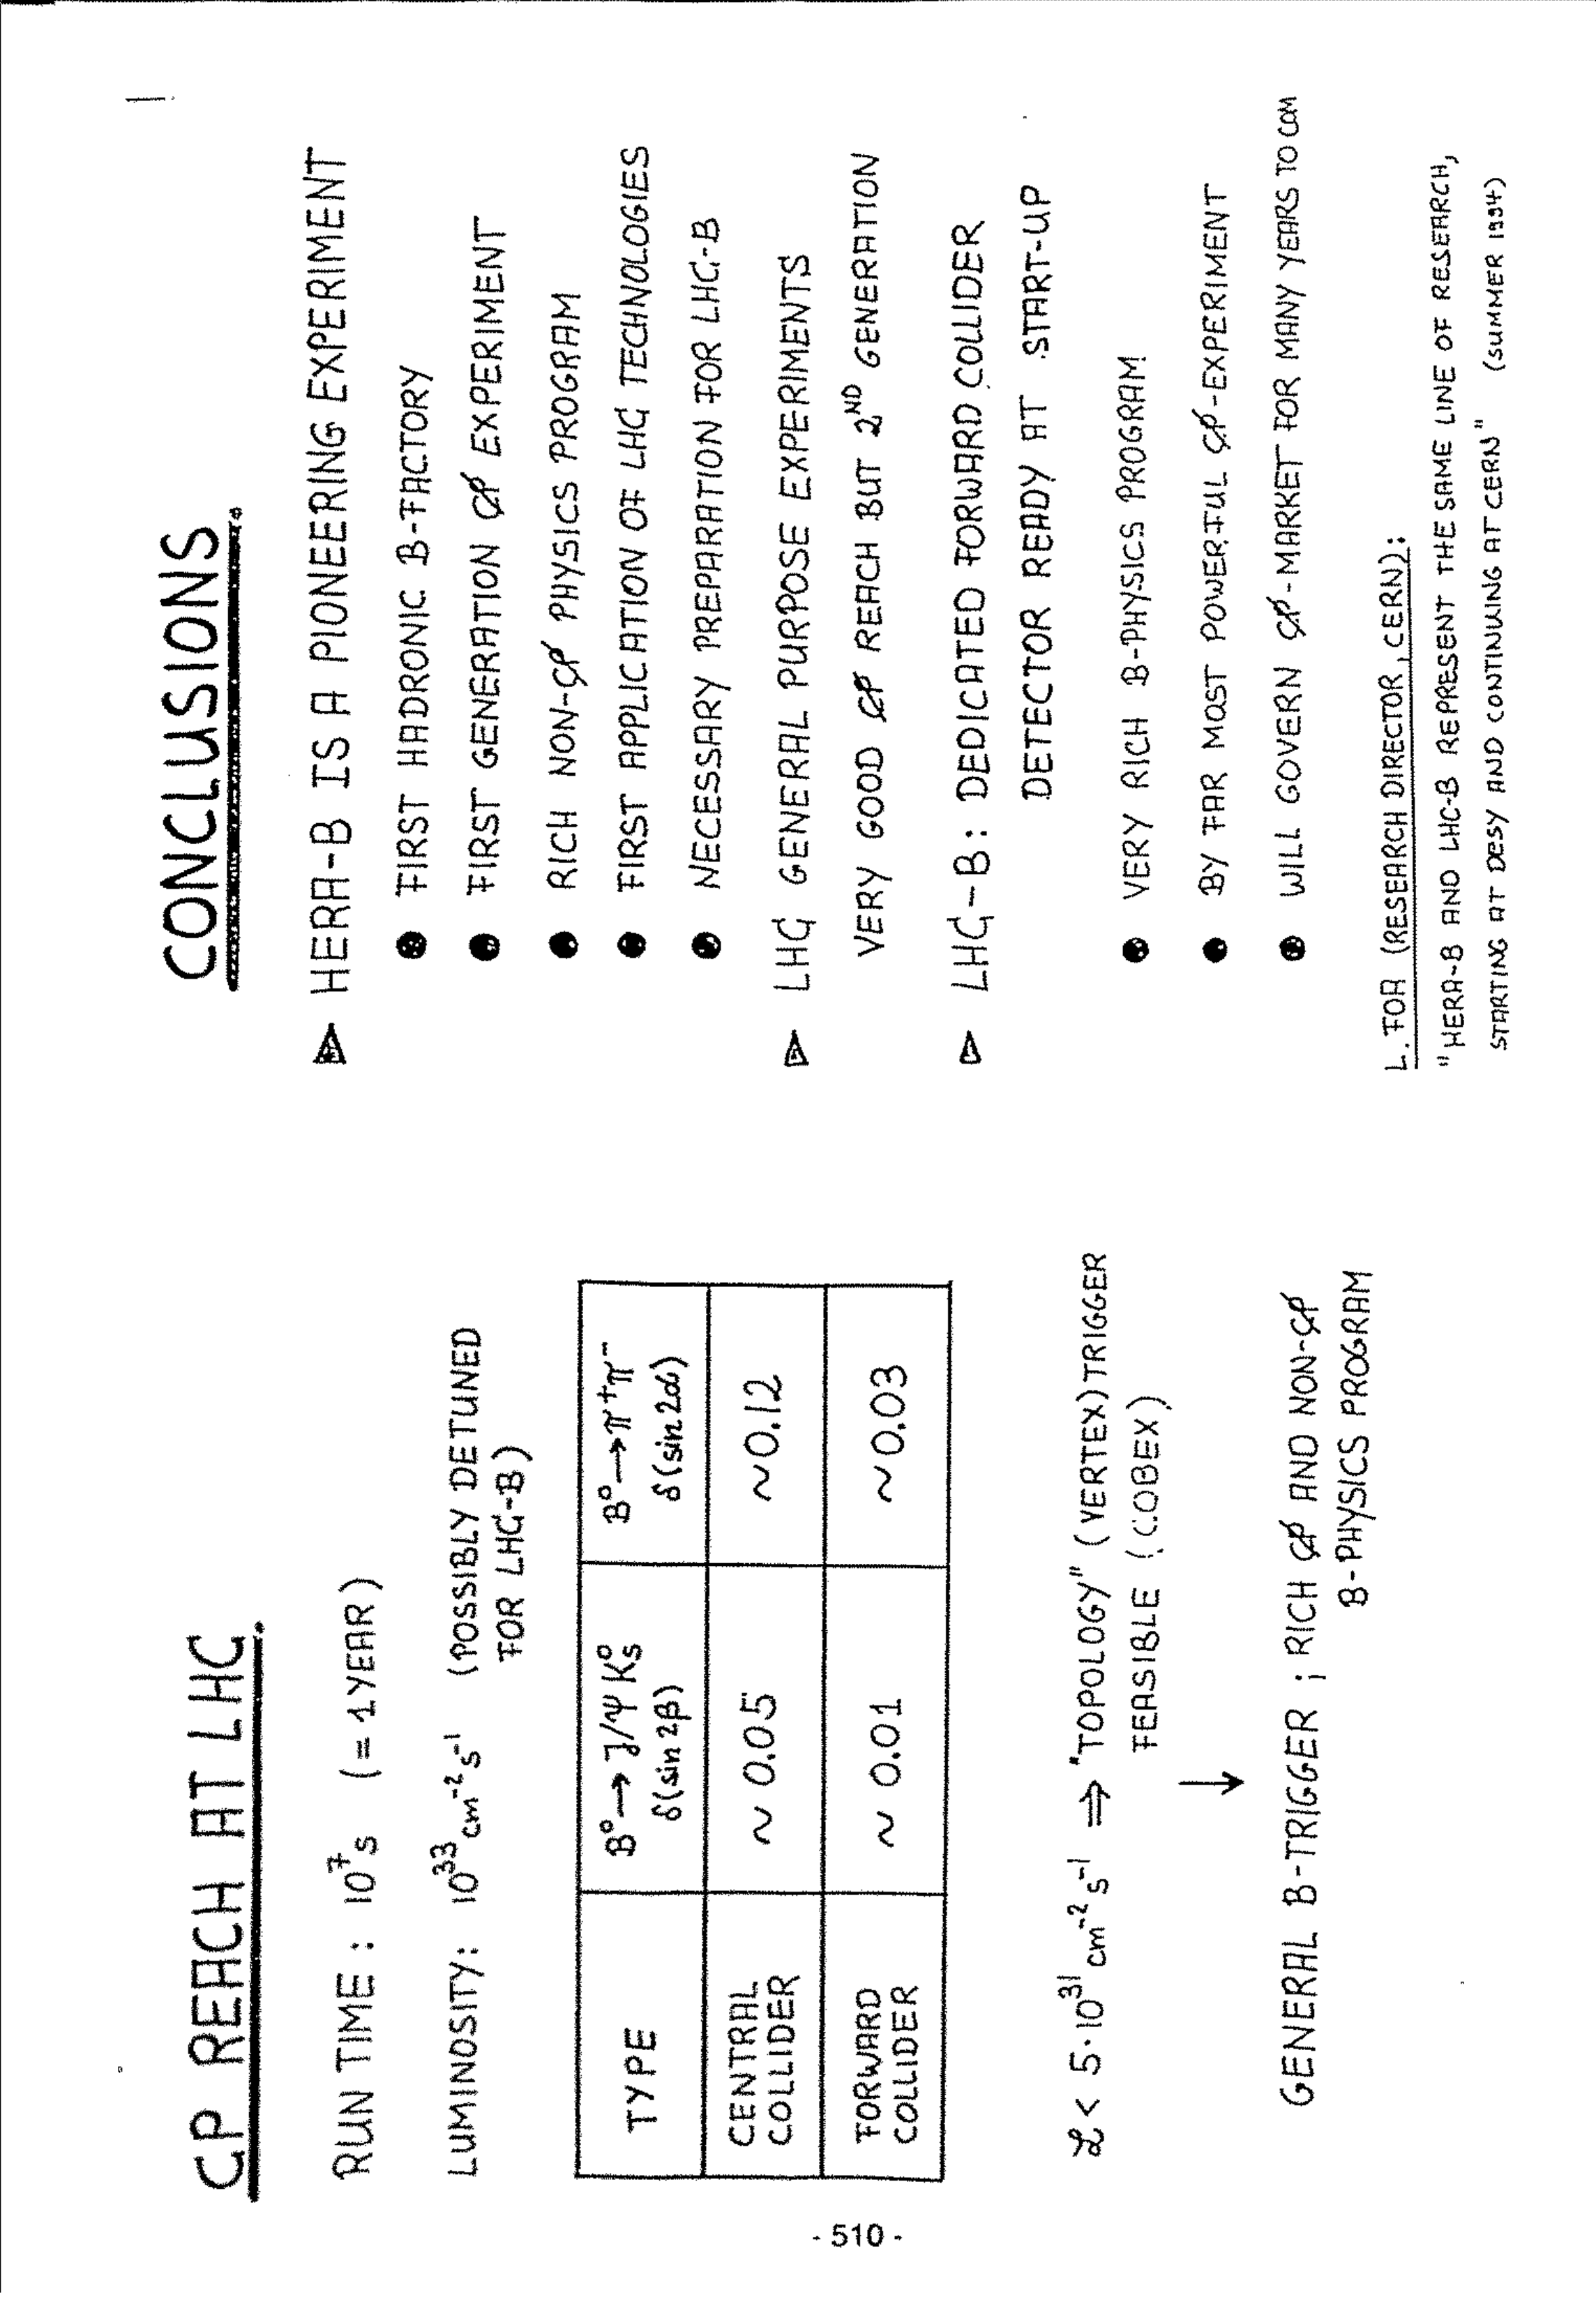 CP REACH AT LHC
RUN TIME : 10⁷ s (= 1 YEAR)
LUMINOSITY: 10³³ cm⁻² s⁻¹ (POSSIBLY DETUNED
FOR LHC-B)
TYPE B⁰→J/Ψ K⁰s B⁰→π⁺π⁻
δ(sin 2β) δ(sin 2α)
CENTRAL
COLLIDER ~ 0.05 ~0.12
FORWARD
COLLIDER ~ 0.01 ~0.03
ℒ < 5·10³¹ cm⁻² s⁻¹ ⇒ "TOPOLOGY" (VERTEX) TRIGGER
FEASIBLE (COBEX)
↓
GENERAL B-TRIGGER ; RICH C̸P̸ AND NON-C̸P̸
B-PHYSICS PROGRAM
CONCLUSIONS
▷ HERA-B IS A PIONEERING EXPERIMENT
● FIRST HADRONIC B-FACTORY
● FIRST GENERATION C̸P̸ EXPERIMENT
● RICH NON-C̸P̸ PHYSICS PROGRAM
● FIRST APPLICATION OF LHC TECHNOLOGIES
● NECESSARY PREPARATION FOR LHC-B
▷ LHC GENERAL PURPOSE EXPERIMENTS
VERY GOOD C̸P̸ REACH BUT 2ND GENERATION
▷ LHC-B: DEDICATED FORWARD COLLIDER
DETECTOR READY AT START-UP
● VERY RICH B-PHYSICS PROGRAM
● BY FAR MOST POWERFUL C̸P̸-EXPERIMENT
● WILL GOVERN C̸P̸-MARKET FOR MANY YEARS TO COM
L. FOA (RESEARCH DIRECTOR, CERN):
"HERA-B AND LHC-B REPRESENT THE SAME LINE OF RESEARCH,
STARTING AT DESY AND CONTINUING AT CERN" (SUMMER 1994)
- 510 -